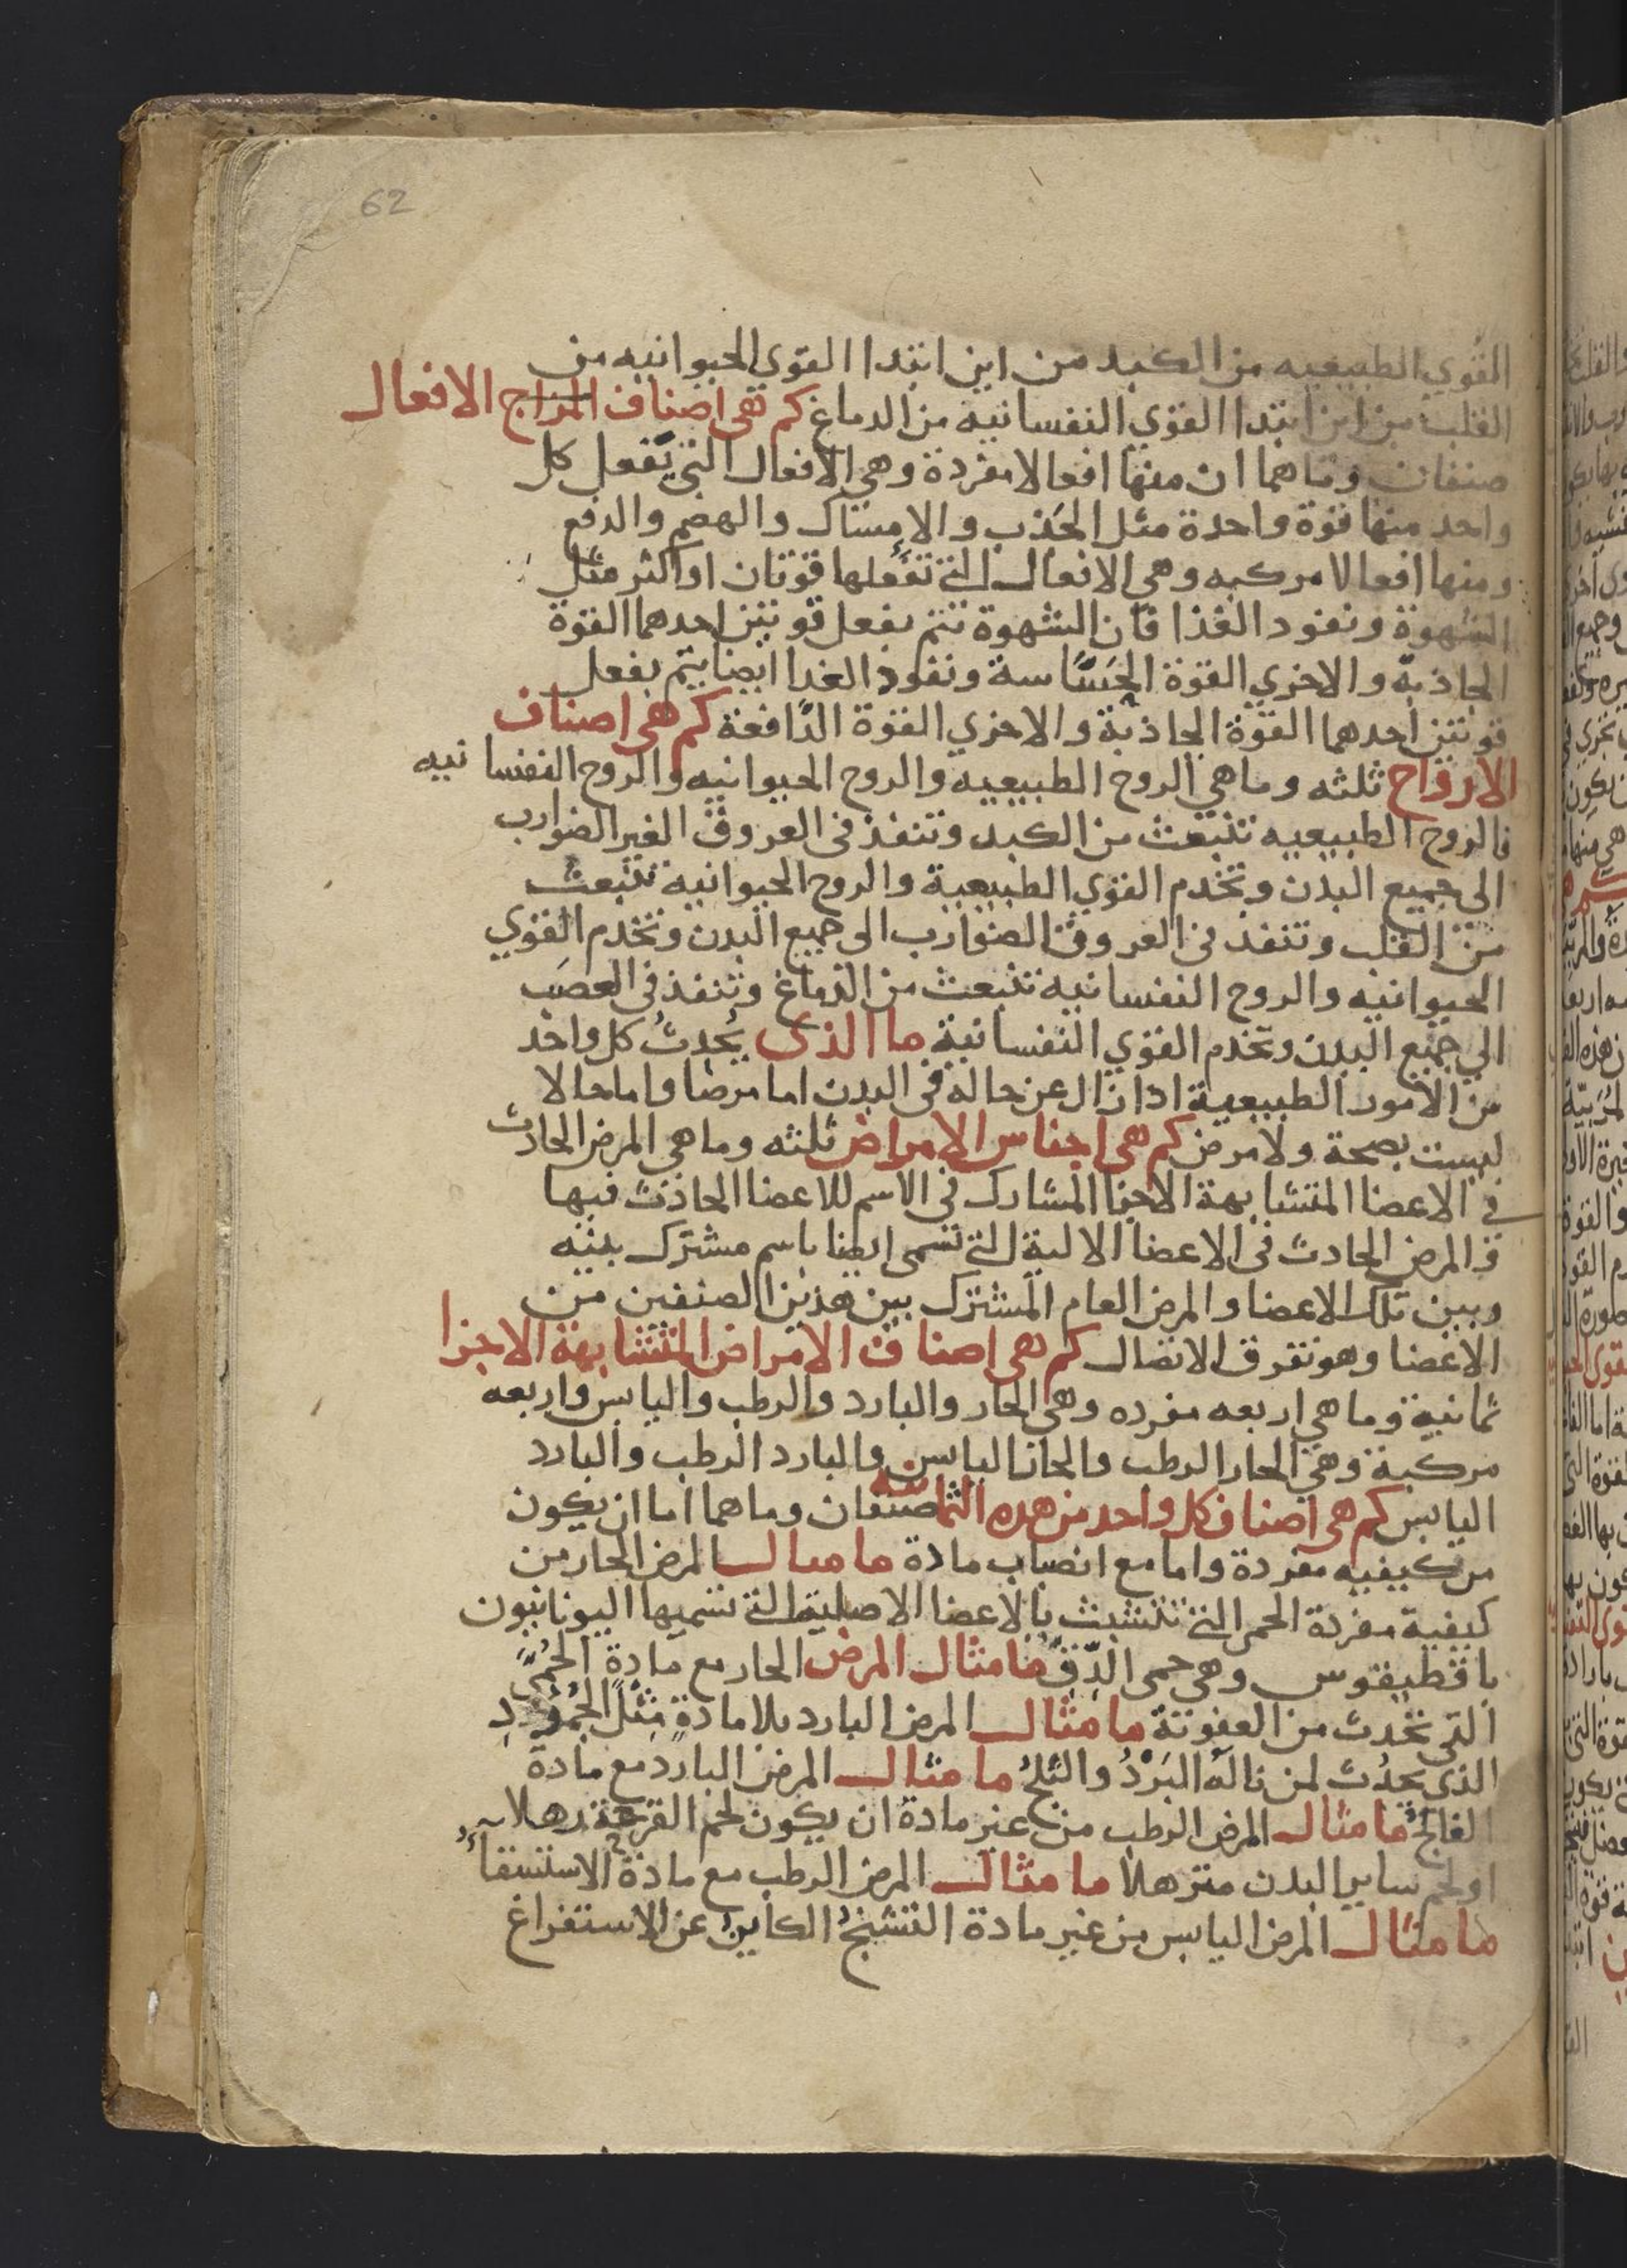 62
القوي الطبيعيه من الكبد من اين ابتدا القوي الحيوانيه من
القلب من اين ابتدا القوي النفسانيه من الدماغ كم هى اصناف المزاج الافعال
صنفان وما هما ان منها افعالا مفردة وهي الافعال التي تفعل كل
واحد منها قوة واحدة مثل الجذب والامساك والهضم والدفع
ومنها افعالا مركبه وهي الافعال التي تفعلها قوتان او اكثر مثل
الشهوة ونفود الغذا فان الشهوة تتم بفعل قوتين احدهما القوة
الجاذبة والاخري القوة الحساسة ونفود الغدا ايضا يتم بفعل
قوتين احدهما القوة الجاذبة والاخري القوة الدافعة كم هى اصناف
الارواح ثلثه وما هي الروح الطبيعيه والروح الحيوانيه والروح النفسانيه
فالروح الطبيعيه تنبعث من الكبد وتنفذ فى العروق الغير الضوارب
الى جميع البدن وتخدم القوي الطبيعية والروح الحيوانيه تنبعث
من القلب وتنفد فى العروق الضوارب الى جميع البدن وتخدم القوي
الحيوانيه والروح النفسانيه تنبعث من الدماغ وتنفذ فى العصب
الي جميع البدن وتخدم القوي النفسانية ما الذى يحدث كل واحد
من الامور الطبيعية ادا زال عن حاله فى البدن اما مرضا واما حالا
ليست بصحة ولا مرض كم هى اجناس الامراض ثلثه وما هي المرض الحادث
في الاعضا المتشابهة الاجزا المشارك في الاسم للاعضا الحادث فيها
والمرض الحادث فى الاعضا الالية التي تسمى ايضا باسم مشترك بينه
وبين تلك الاعضا والمرض العام المشترك بين هذين الصنفين من
الاعضا وهو تفرق الاتصال كم هى اصناف الامراض المتشابهة الاجزا
ثمانية وما هي اربعه مفرده وهي الحار والبارد والرطب واليابس واربعه
مركبة وهي الحار الرطب والحار اليابس والبارد الرطب والبارد
اليابس كم هى اصناف كل واحد من هده الثمانيه صنفان وما هما اما ان يكون
من كيفيه مفردة واما مع انصباب مادة ما مثال المرض الحار من
كيفية مفردة الحمى التي تتشبث بالاعضا الاصلية التي تسميها اليونانيون
باقطيقوس وهي حمى الدق ما مثال المرض الحار مع مادة الحمى
التي تحدث من العفونة ما مثال المرض البارد بلا مادة مثل الجمود
الذي يحدث لمن ناله البرد والثلج ما مثال المرض البارد مع مادة
الفالج ما مثال المرض الرطب من غير مادة ان يكون لحم القرحة رهلا
او لحم ساير البدن مترهلا ما مثال المرض الرطب مع مادة الاستسقآ
ما مثال المرض اليابس من غير مادة التشنج الكاين عن الاستفراغ